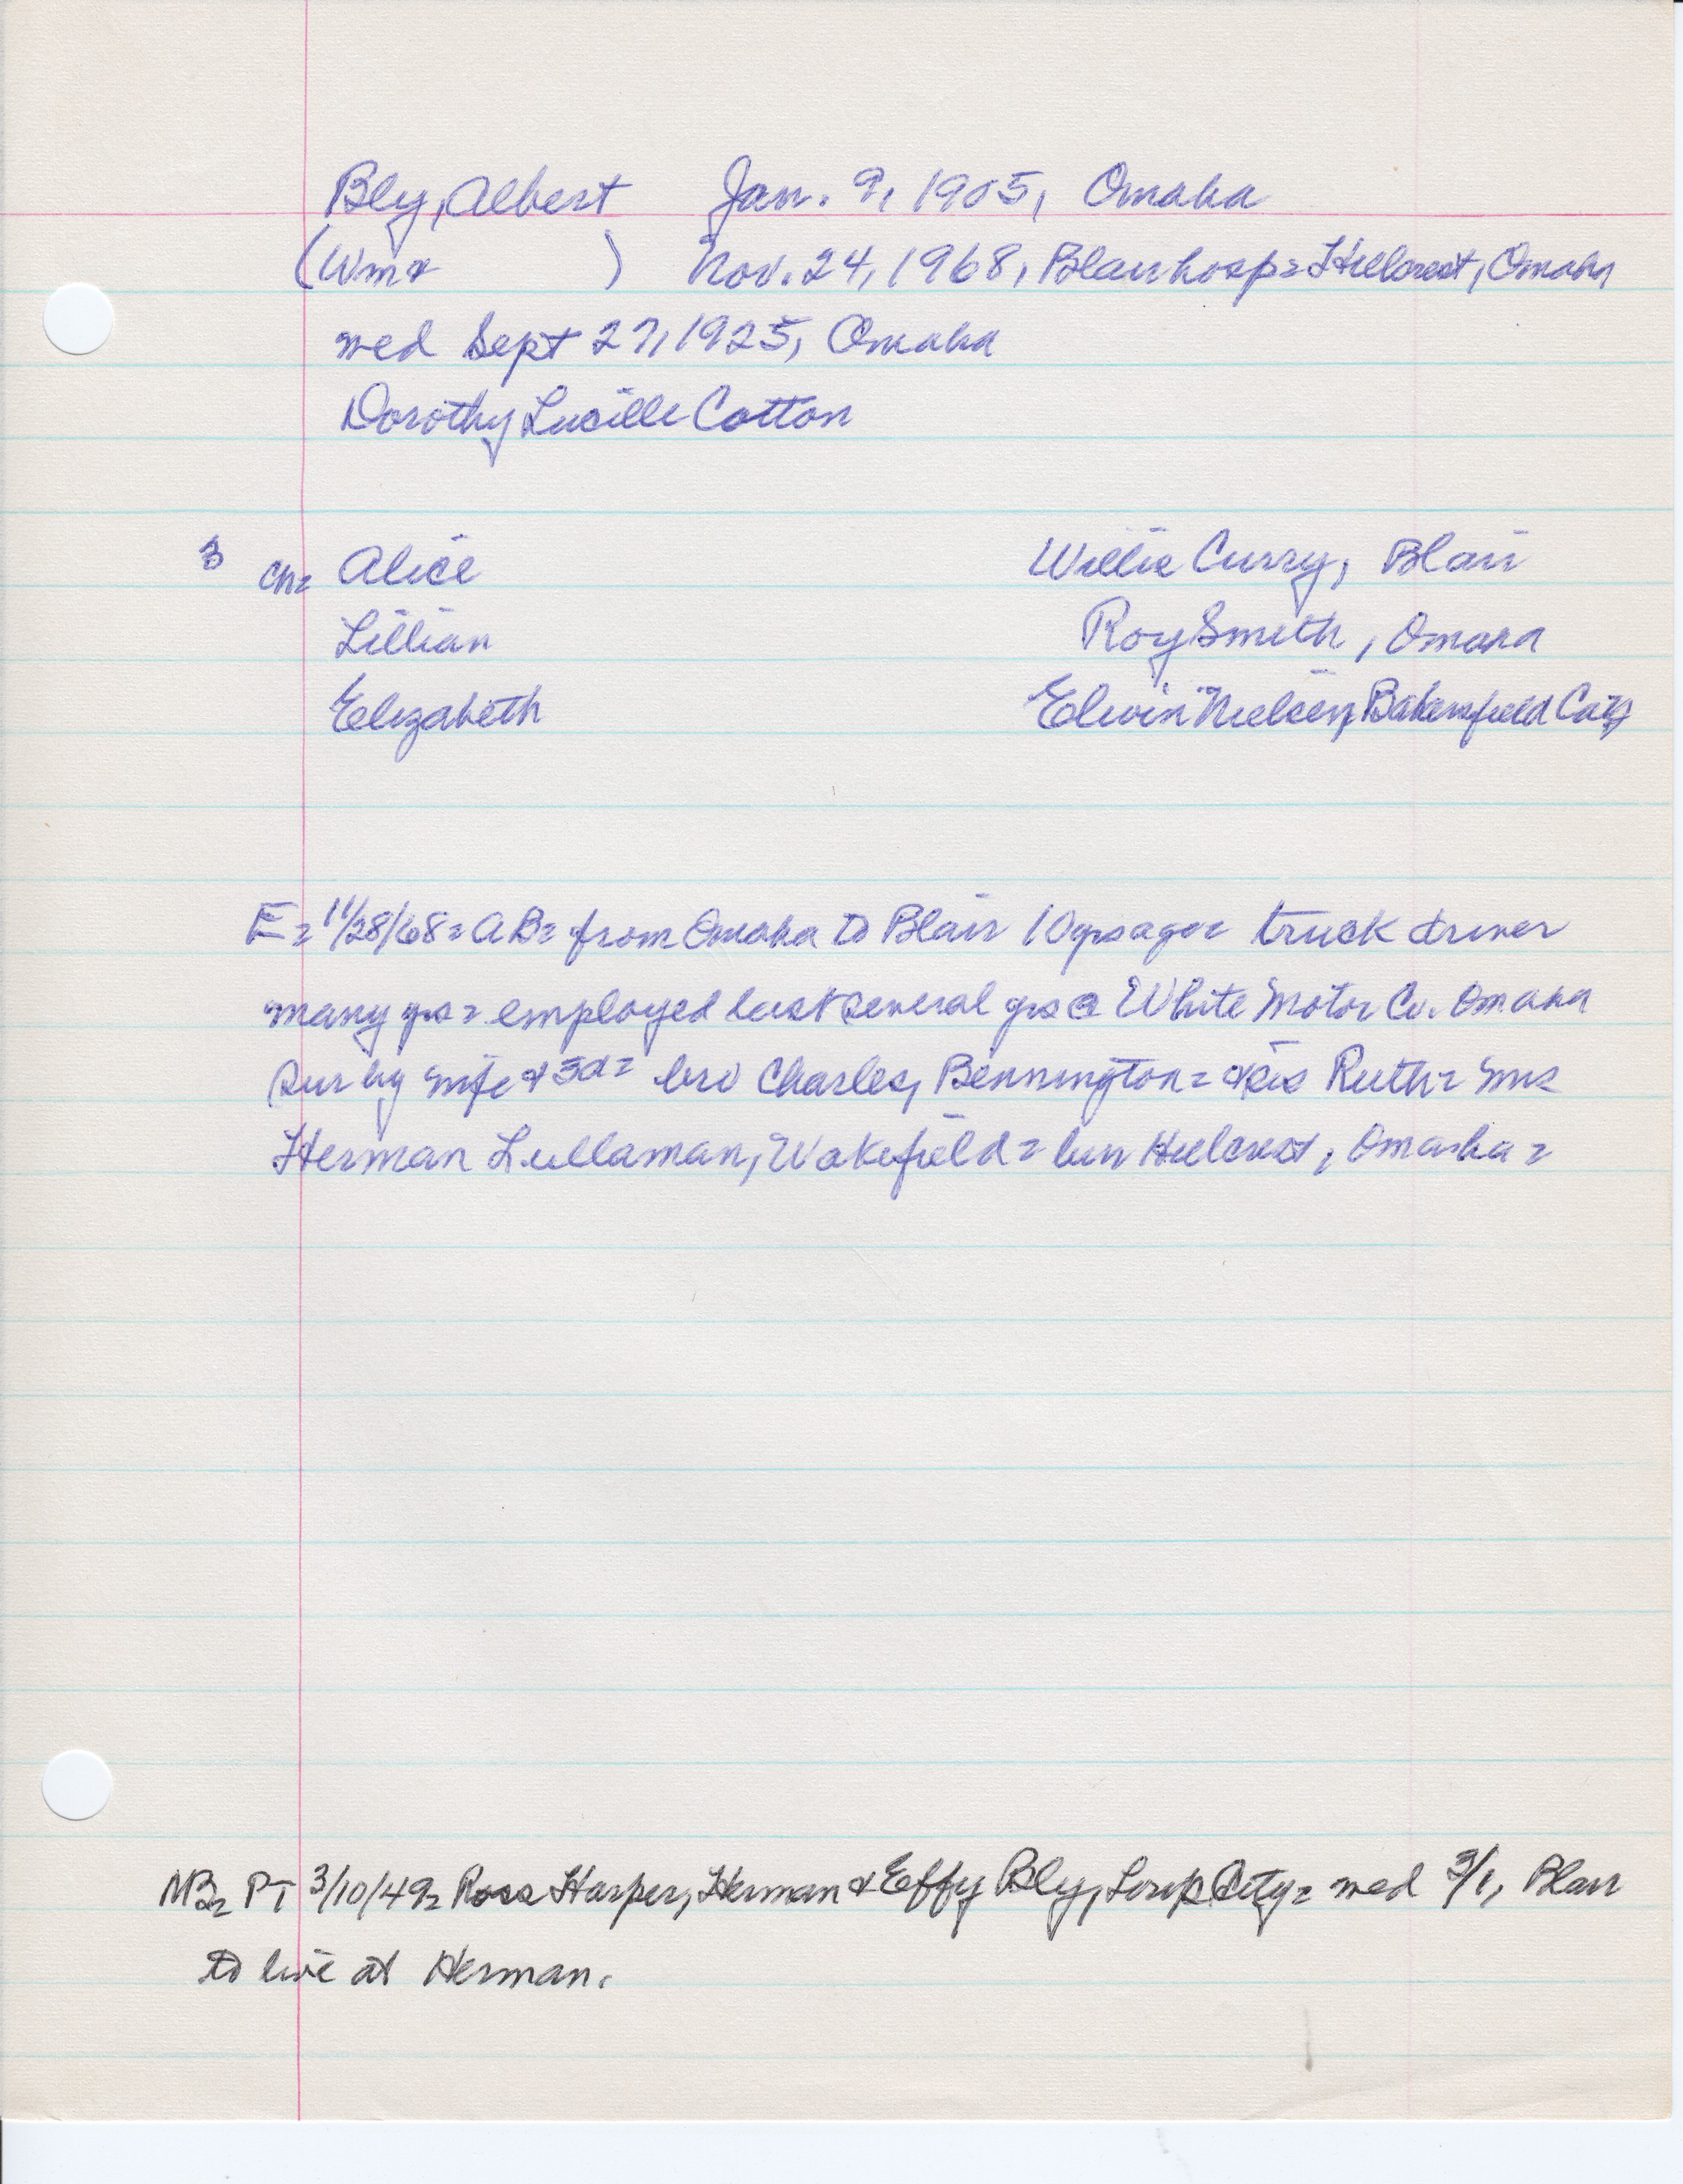 Bly, Albert Jan. 9, 1905, Omaha
(Wm & ) Nov. 24, 1968, Blair hosp = Hillcrest, Omaha
med Sept 27, 1925, Omaha
Dorothy Lucille Cotton
3 ch = Alice Willie Curry, Blair
Lillian Roy Smith, Omaha
Elizabeth Elwin Nielsen, Bakersfield
E = 11/28/68 = AB = from Omaha to Blair 10 yrs ago = truck driver
many yrs = employed last several yrs @ White Motor Co. Omaha
sur by wife & 3d = bro Charles, Bennington = & sis Ruth = Mrs
Herman Lullaman, Wakefield = bur Hillcrest, Omaha =
MB = PT 3/10/49 = Ross Harper, Herman & Effy Bly, Loup City = med 3/1, Blair
to live at Herman.